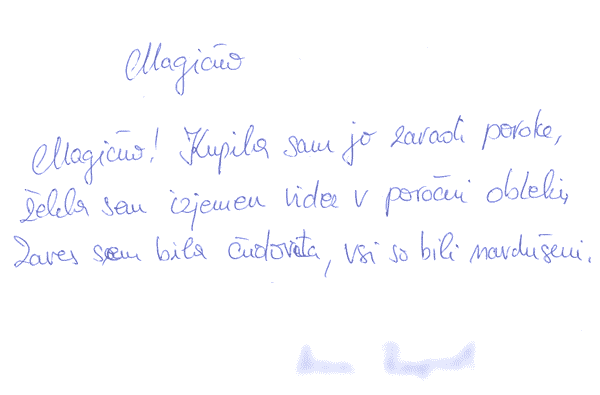 Magično
Magično! Kupila sam jo zaradi poroke,
želela sem izjemen videz v poročni obleki,
zares sem bila čudovita, vsi so bili navdušeni.